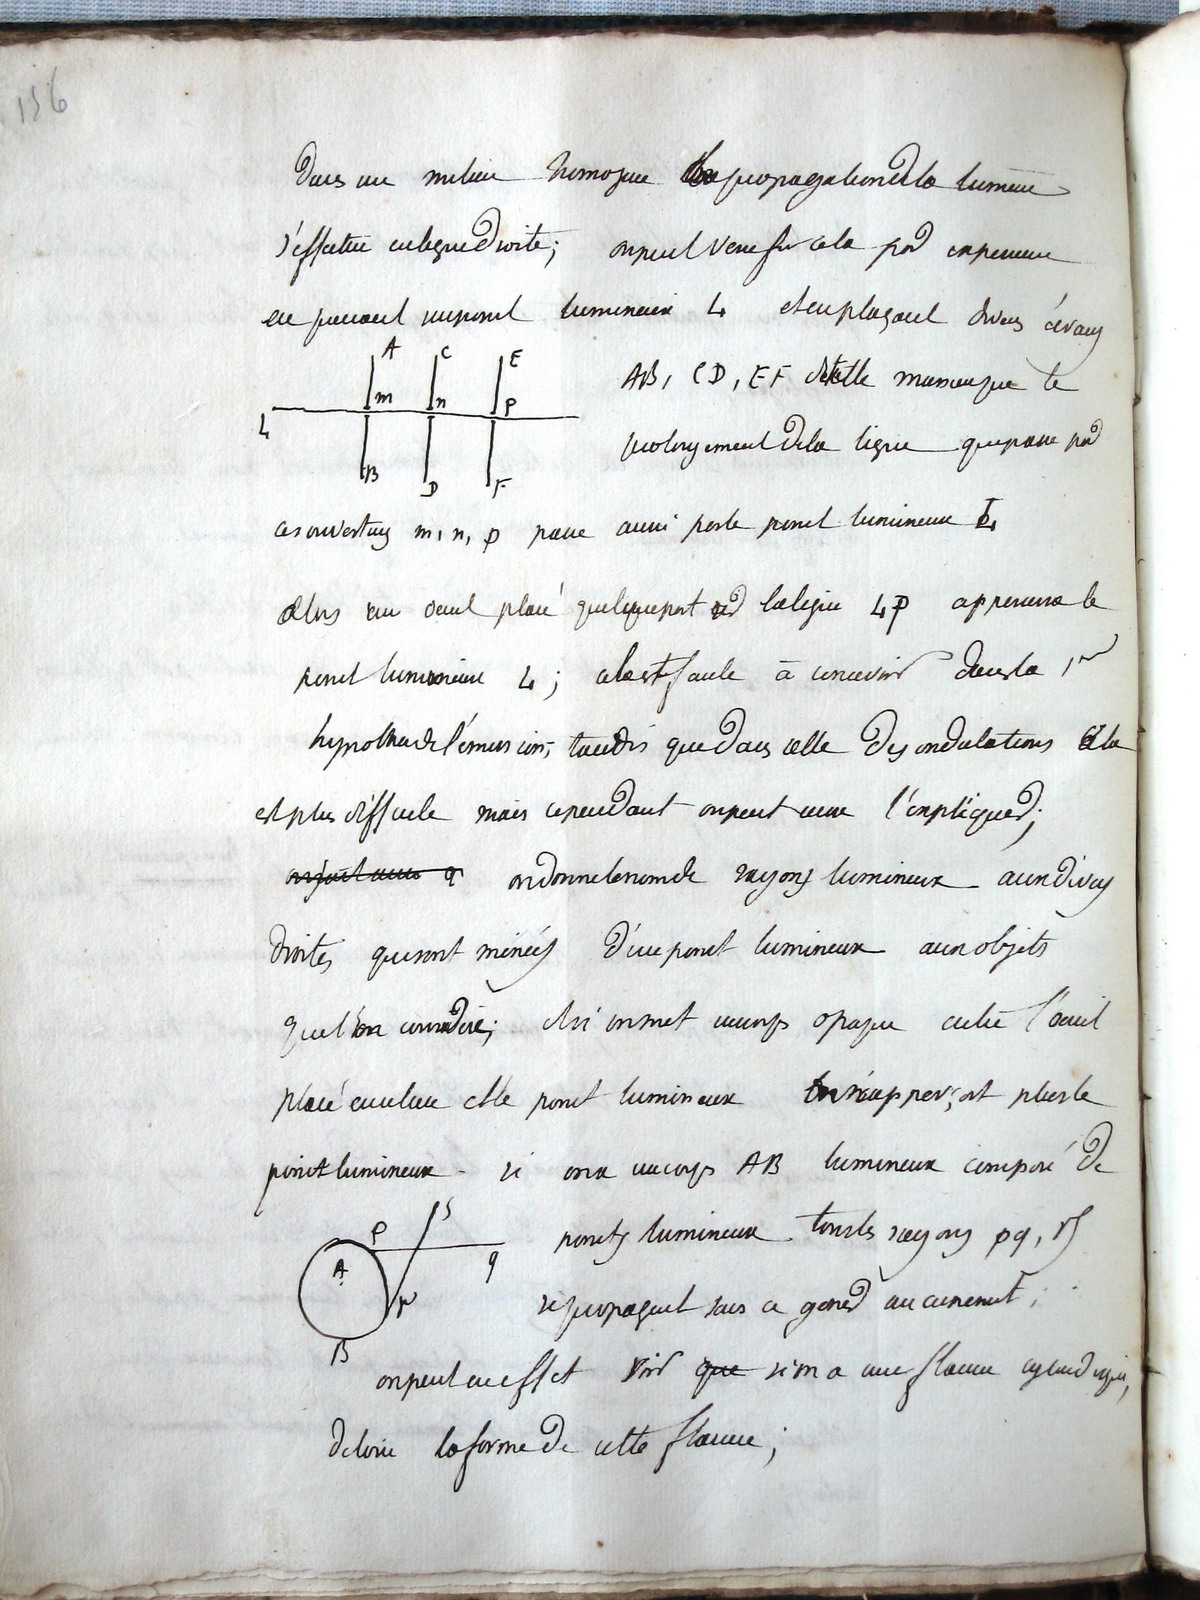 156
Dans un milieu homogene la propagation de la lumiere
s'effectue en ligne droite; on peut verifier cela par experience
en prenant un point lumineux L et en plaçant divers écrans
A C E
AB, CD, EF de telle maniere que le
m n p
L
prolongement de la ligne qui passe par
B D F
ces ouvertures m, n, p passe aussi par le point lumineux L
alors un oeuil placé quelquepart sur la ligne LP appercevra le
point lumineux L; cela est facile à concevoir dans la 1re
hypothese de l'émission, tandis que dans celle des ondulations cela
est plus difficile mais cependant on peut encore l'expliquer;
on donne le nom de rayons lumineux aux divers
droites qui sont menées d'un point lumineux aux objets
que l'on considere; et si on met un corps opaque entre l'oeuil
placé en un lieu et le point lumineux on n'apperçoit plus le
point lumineux. si on a un corps AB lumineux composé de
P S
points lumineux tous les rayons pq, rs
A q
r
se propagent sans se gener aucunement;
B
on peut en effet voir que si on a une flamme cylindrique,
de loin la forme de cette flamme;